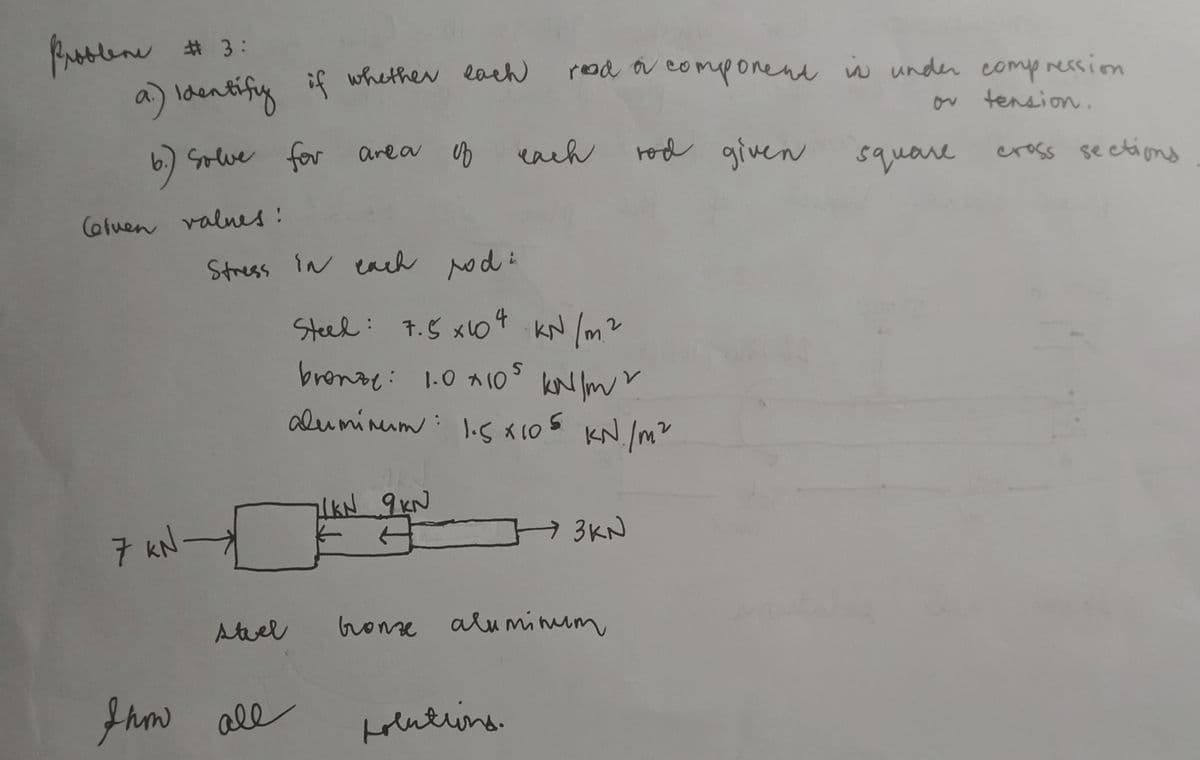 Problem # 3:
a.) Identify if whether each rod or component is under compression
or tension.
b.) Solve for area of each rod given square cross sections.
Given values:
Stress in each rod:
Steel: 7.5 x10⁴ KN/m²
bronze: 1.0 x10⁵ kN/m²
aluminum: 1.5 x10⁵ KN/m²
1KN 9KN
7 KN 3KN
steel bronze aluminum
Show all solutions.